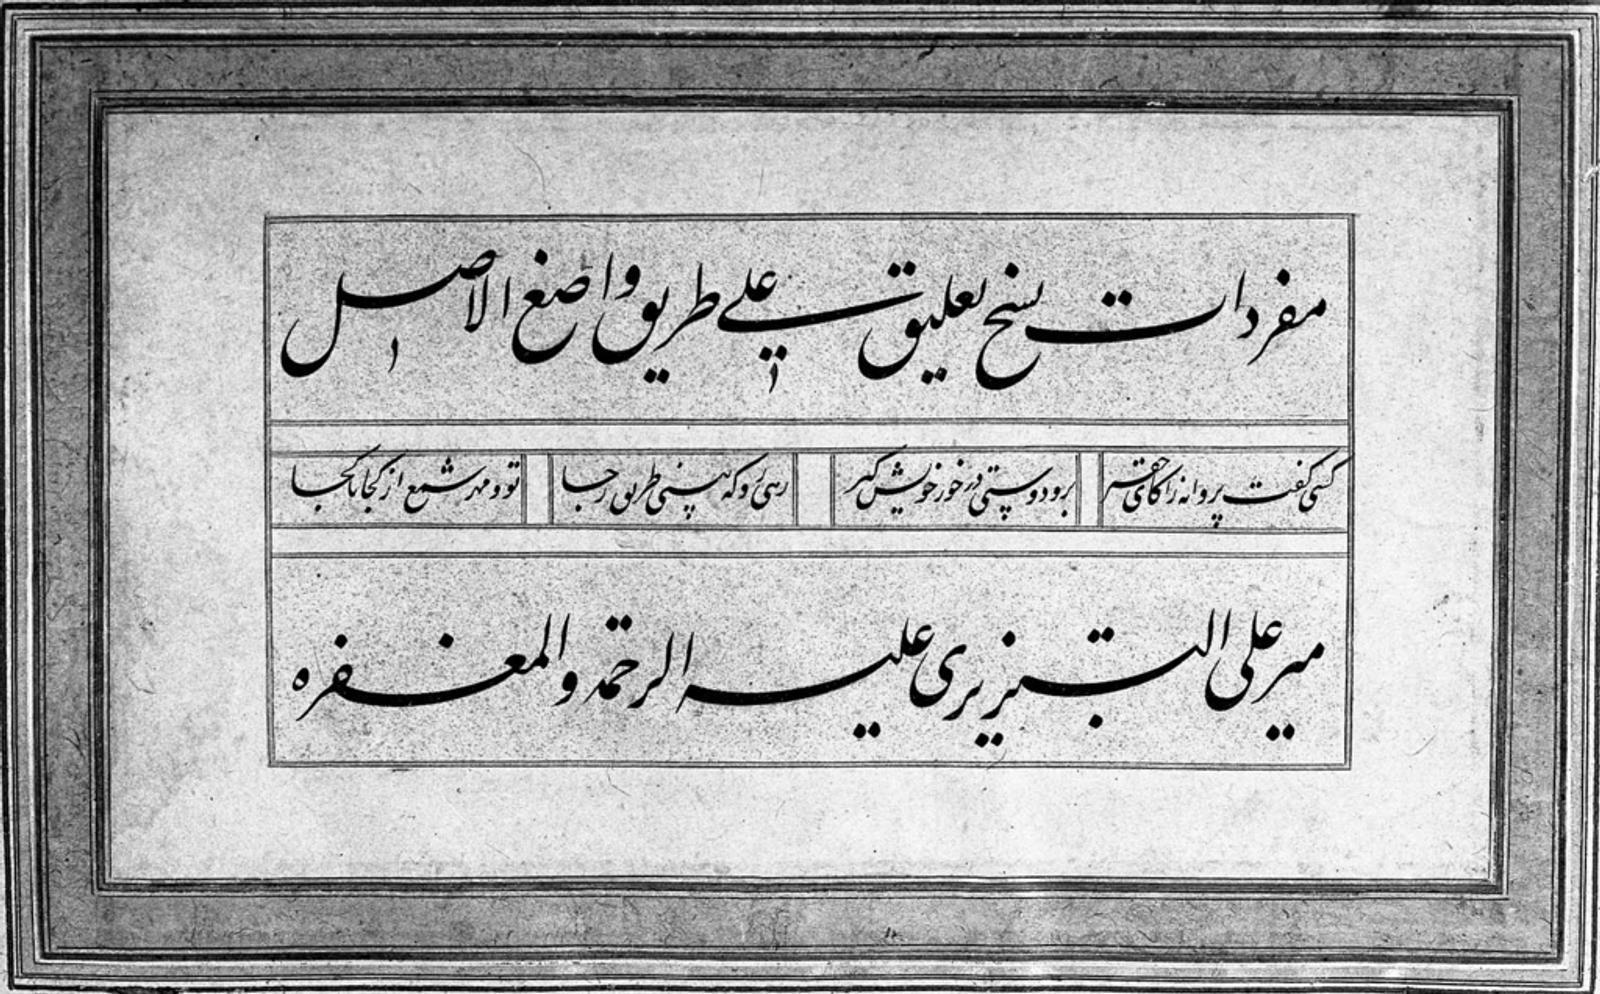 مفردات نسخ تعلیق علی طریق واضع الاصل
کسی گفت پروانه را کای حقیر
برو دوستی در خور خویش گیر
رهی رو که بینی طریق رجا
تو و مهر شمع از کجا تا کجا
میر علی التبریزی علیه الرحمة والمغفره